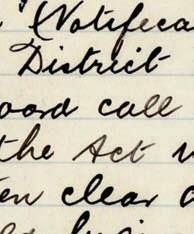 (Notifica
District
oard call
the Act
en clear